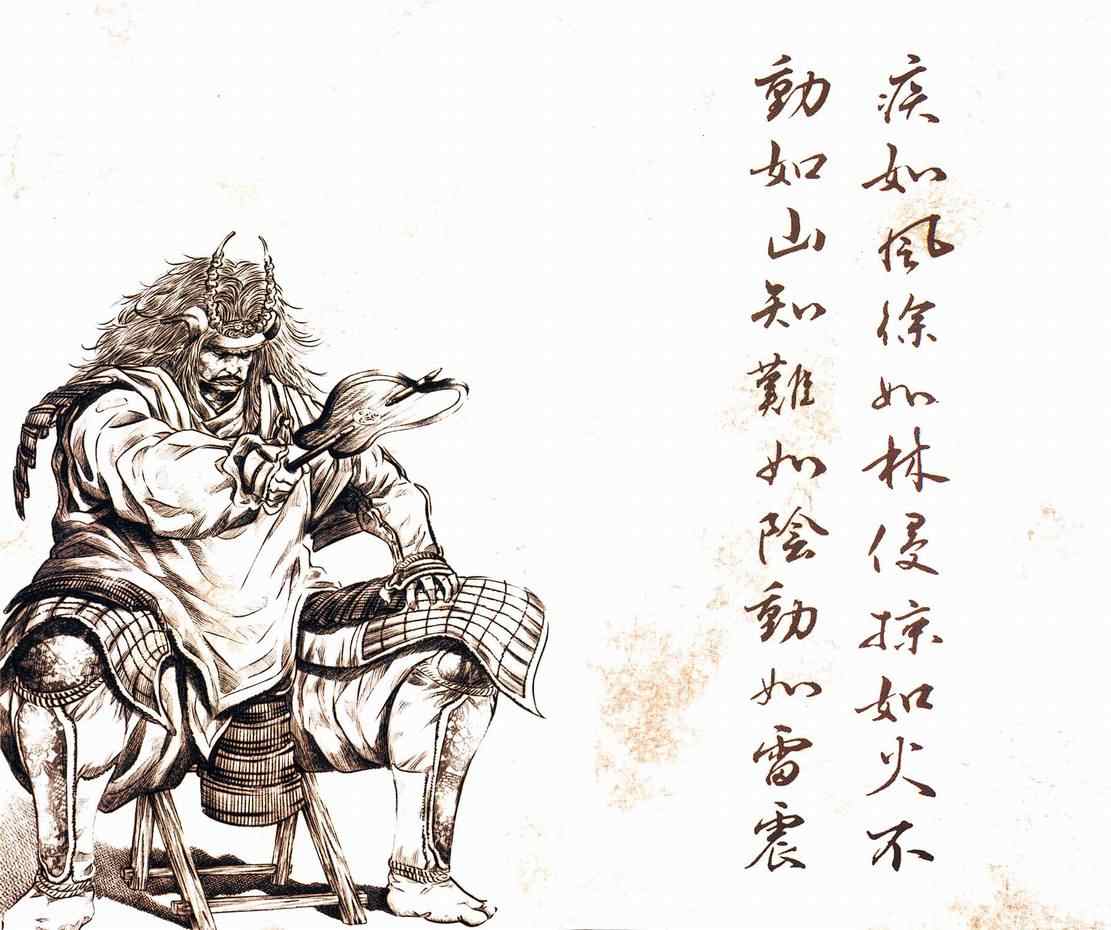 疾如風徐如林侵掠如火不
動如山知難如陰動如雷震